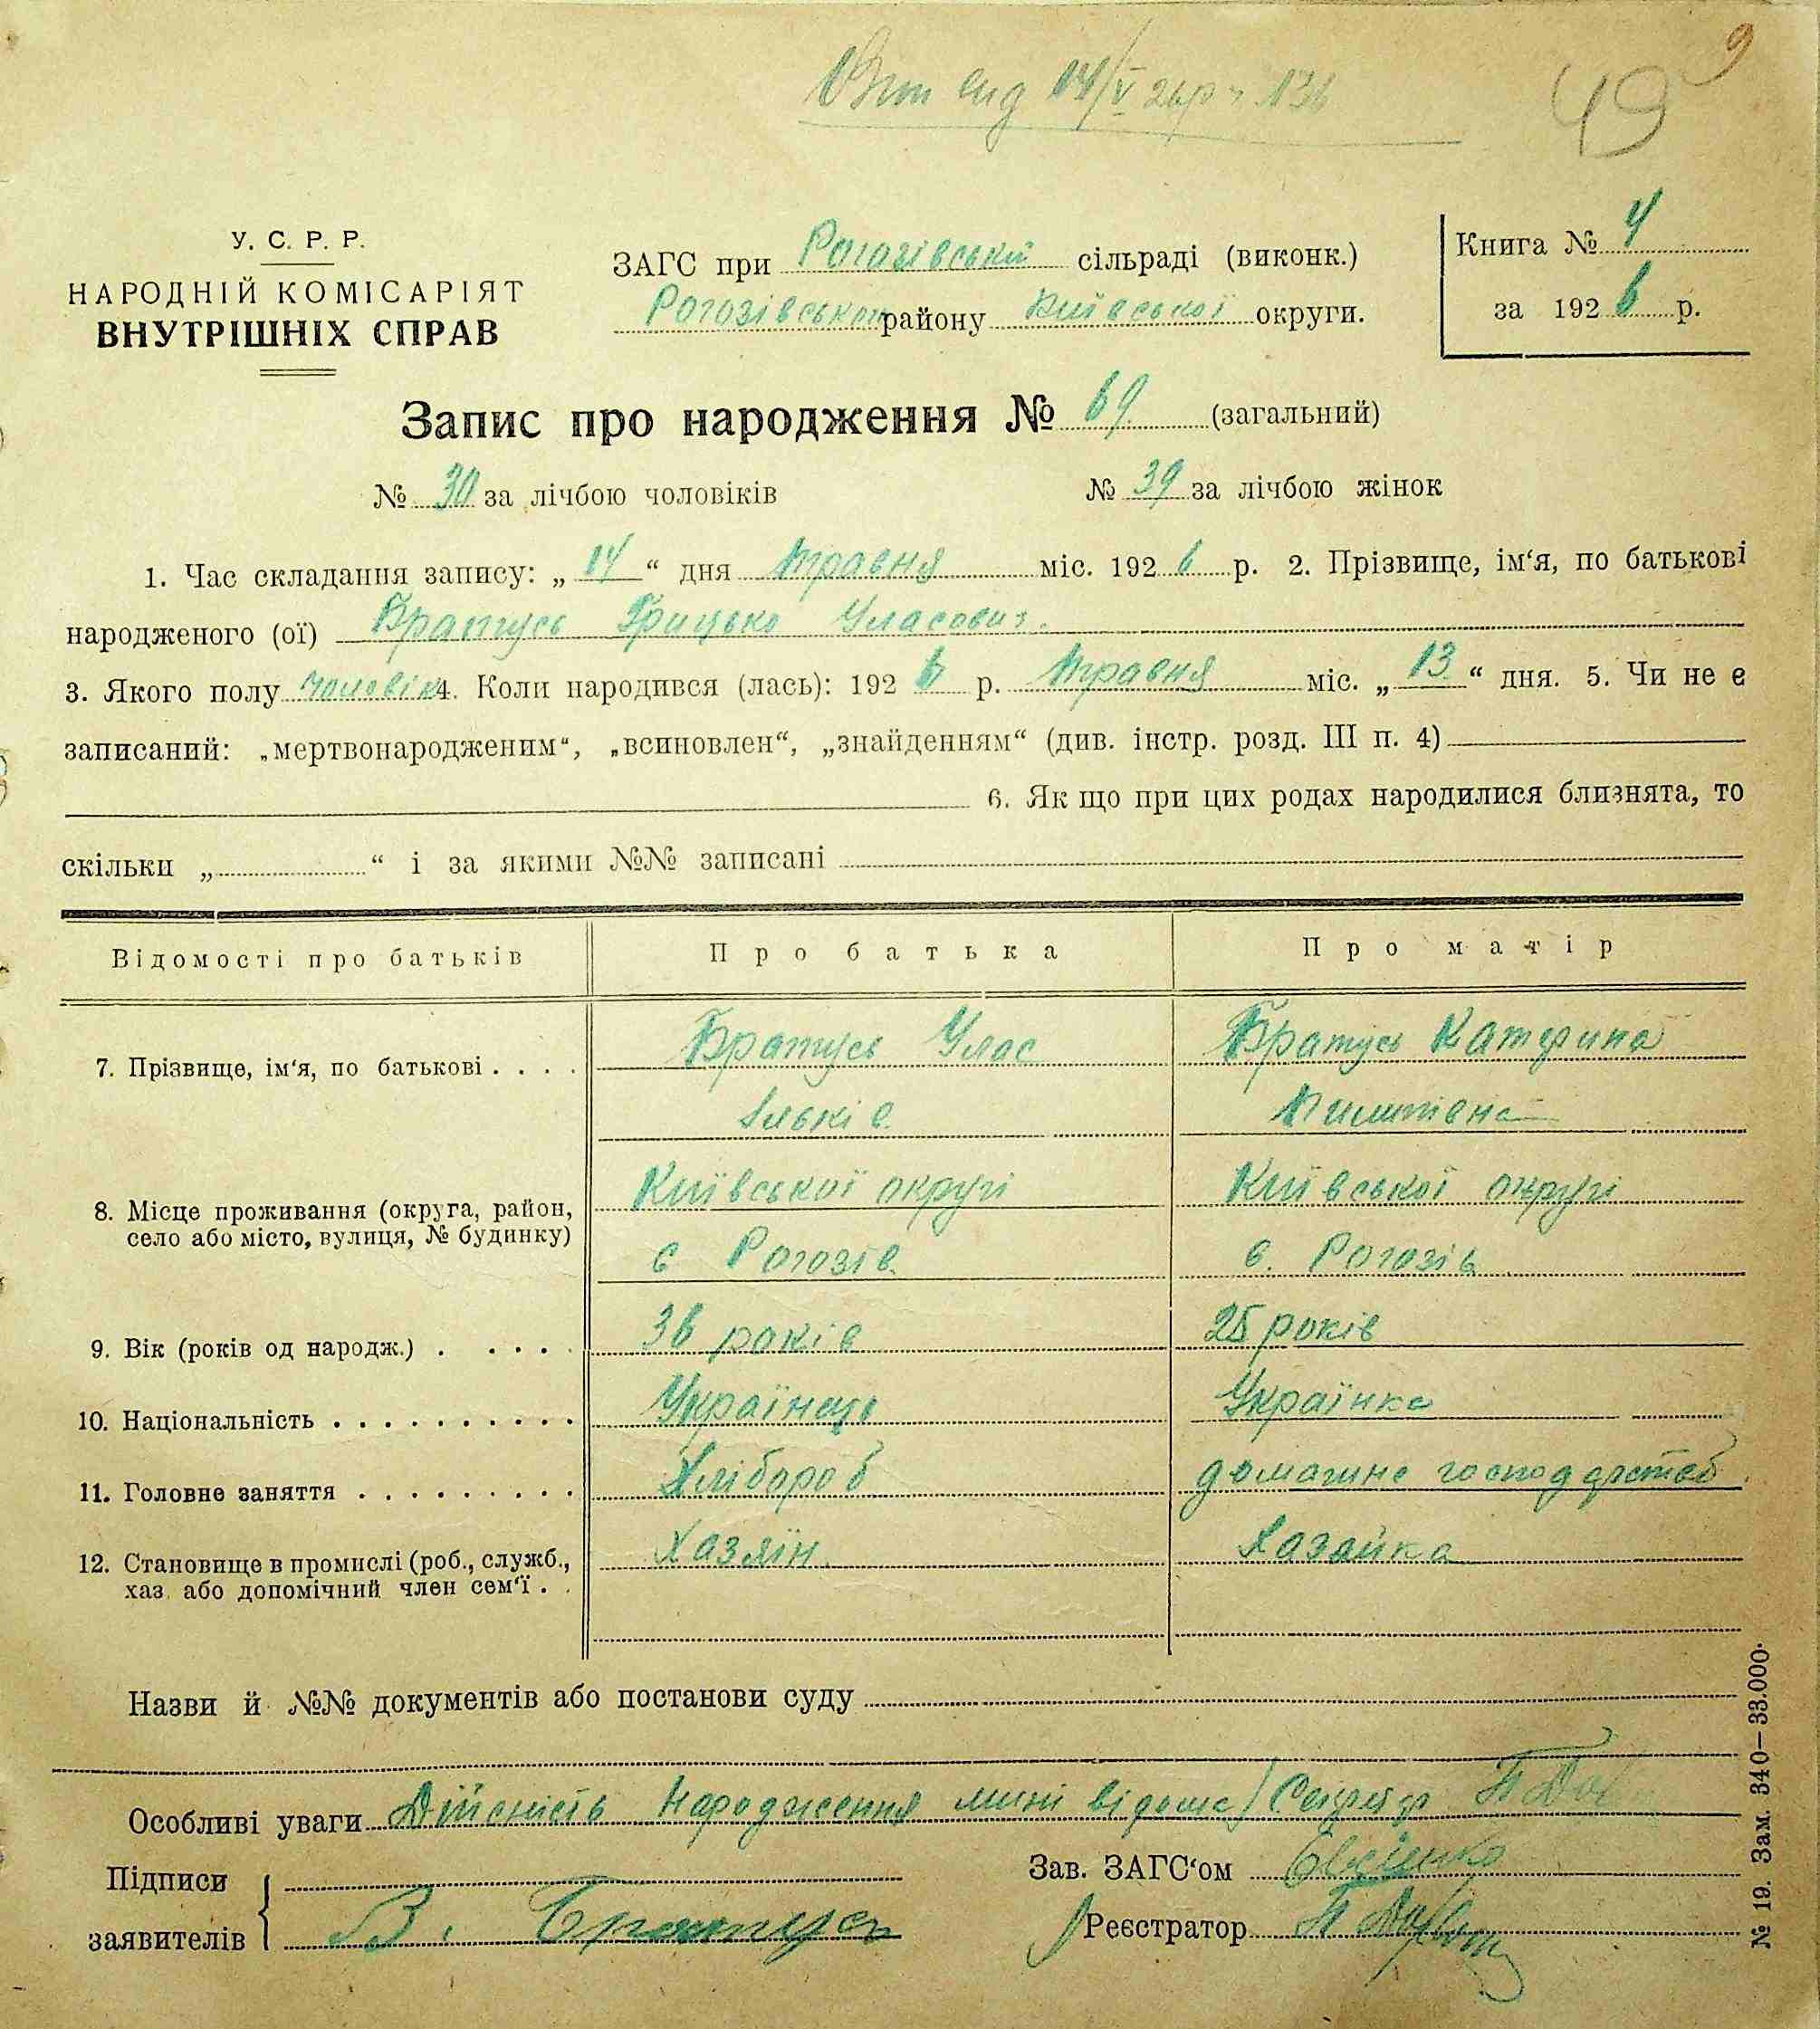 9
49
Вит вид 14/V 26 р № 36
У. С. Р. Р.
НАРОДНІЙ КОМІСАРІЯТ
ВНУТРІШНІХ СПРАВ
ЗАГС при Рогозівській сільраді (виконк.)
Рогозівського району Київської округи.
Книга № 4
за 1926 р.
Запис про народження № 69 (загальний)
№ 30 за лічбою чоловіків № 39 за лічбою жінок
1. Час складання запису: „14“ дня травня міс. 1926 р. 2. Прізвище, ім‘я, по батькові
народженого (ої) Братусь Грицько Уласович.
3. Якого полу чоловік 4. Коли народився (лась): 1926 р. травня міс. „13“ дня. 5. Чи не є
записаний: „мертвонародженим“, „всиновлен“, „знайденням“ (див. інстр. розд. III п. 4)
6. Як що при цих родах народилися близнята, то
скільки „ “ і за якими №№ записані
Відомості про батьків Про батька Про матір
7. Прізвище, ім‘я, по батькові Братусь Улас Братусь Катерина
Ільків
8. Місце проживання (округа, район, Київської округі Київської округі
село або місто, вулиця, № будинку) с Рогозів с. Рогозів
9. Вік (років од народж.) 36 років 25 років
10. Національність Українець Українка
11. Головне заняття Хлібороб домашнє господарство
12. Становище в промислі (роб., служб., Хазяїн Хазайка
хаз. або допомічний член сем‘ї
Назви й №№ документів або постанови суду
Особливі уваги Дійсність народження мині відома / Секретар
Підписи
заявителів В. Братусь
Зав. ЗАГС‘ом
Реєстратор
№ 19. Зам. 340–33.000.